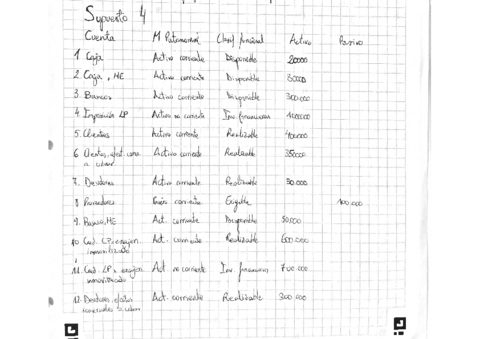 Supuesto 4
Cuenta M Patrimonial Clasif funcional Activo Pasivo
1. Caja Activo corriente Disponible 20000
2. Caja, ME Activo corriente Disponible 3000
3. Bancos Activo corriente Disponible 300.000
4. Imposición LP Activo no corriente Inv. financiera
5. Clientes Activo corriente Realizable
6. Clientes, efect. Activo corriente Realizable 35000
a cobrar
7. Deudores Activo corriente Realizable 50.000
8. Proveedores corriente Exigible 100.000
9. Bancos, ME Act. corriente Disponible 50.000
10. Cred. CP enajen Act. corriente Realizable 600.000
inmovilizado
11. Cred. LP x enajen Act no corriente Inv. financiera 700.000
inmovilizado
12. Deudores, efectos Act. corriente Realizable 300.000
comerciales a cobrar